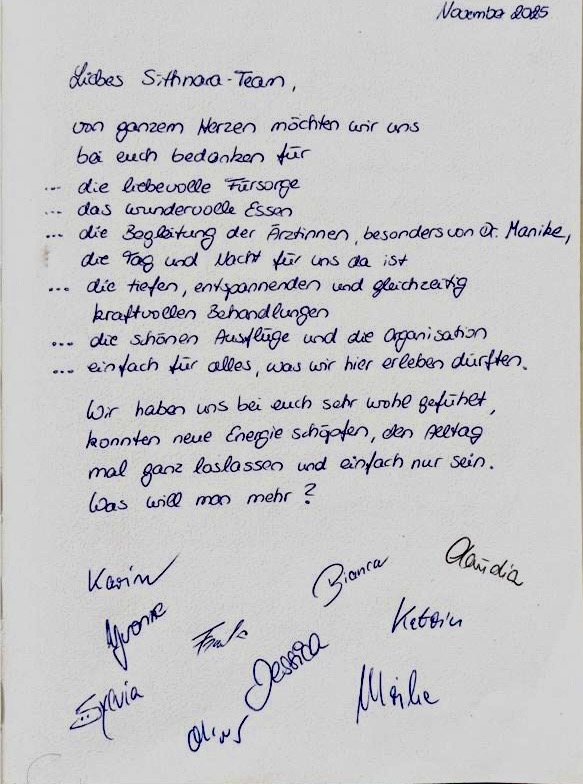 November 2025
Liebes Sithnara-Team,
von ganzem Herzen möchten wir uns
bei euch bedanken für
... die liebevolle Fürsorge
... das wundervolle Essen
... die Begleitung der Ärztinnen, besonders von Dr. Manike,
die Tag und Nacht für uns da ist
... die tiefen, entspannenden und gleichzeitig
kraftvollen Behandlungen
... die schönen Ausflüge und die Organisation
... einfach für alles, was wir hier erleben durften.
Wir haben uns bei euch sehr wohl gefühlt,
konnten neue Energie schöpfen, den Alltag
mal ganz loslassen und einfach nur sein.
Was will man mehr?
Karin
Bianca
Claudia
Yvonne
Frank
Katrin
Jessica
Sylvia
Oliver
Maike